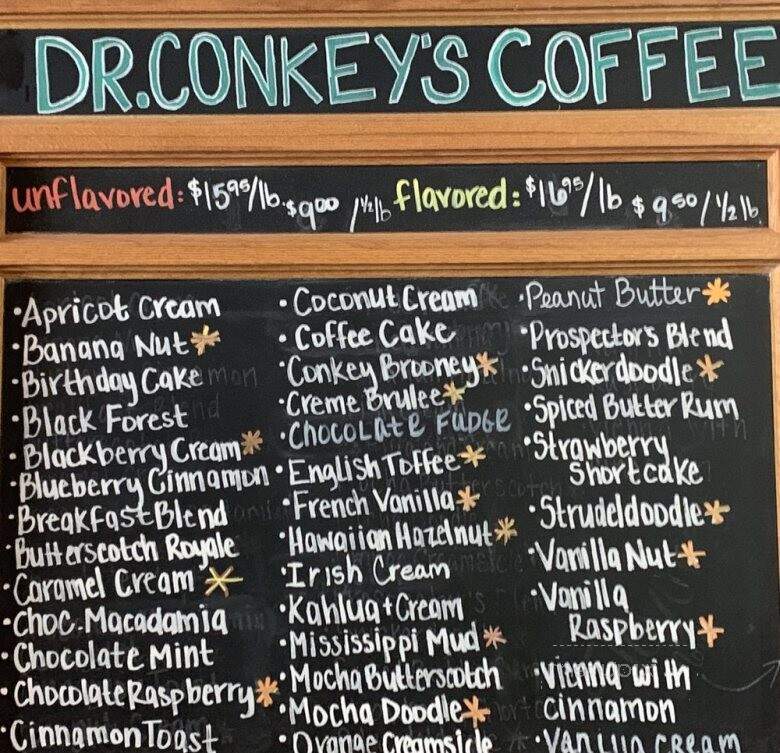 DR.CONKEY'S COFFEE
unflavored: $15⁹⁵/lb. $9⁰⁰/½lb flavored: $16⁹⁵/lb $9⁵⁰/½lb.
·Apricot Cream
·Banana Nut*
·Birthday Cake
·Black Forest
·Blackberry Cream*
·Blueberry Cinnamon
·Breakfast Blend
·Butterscotch Royale
·Caramel Cream*
·Choc. Macadamia
·Chocolate Mint
·Chocolate Raspberry*
·Cinnamon Toast
·Coconut Cream
·Coffee Cake
·Conkey Brooney*
·Creme Brulee*
·Chocolate Fudge
·English Toffee*
·French Vanilla*
·Hawaiian Hazelnut*
·Irish Cream
·Kahlua+Cream
·Mississippi Mud*
·Mocha Butterscotch
·Mocha Doodle*
·Orange Creamsicle
·Peanut Butter*
·Prospector's Blend
·Snickerdoodle*
·Spiced Butter Rum
·Strawberry
Shortcake
·Strudeldoodle*
·Vanilla Nut*
·Vanilla
Raspberry*
·Vienna with
cinnamon
·Vanilla Cream